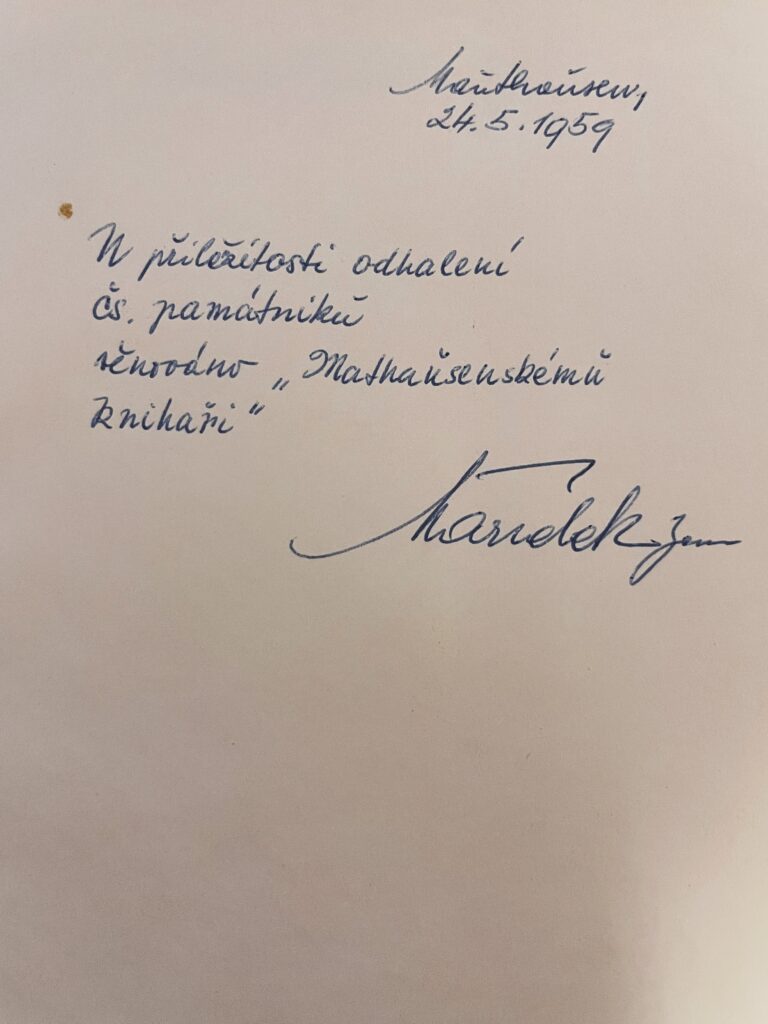 Mauthausen,
24.5.1959
U příležitosti odhalení
čs. památníku
věnováno „Mathausenskému
knihaři“